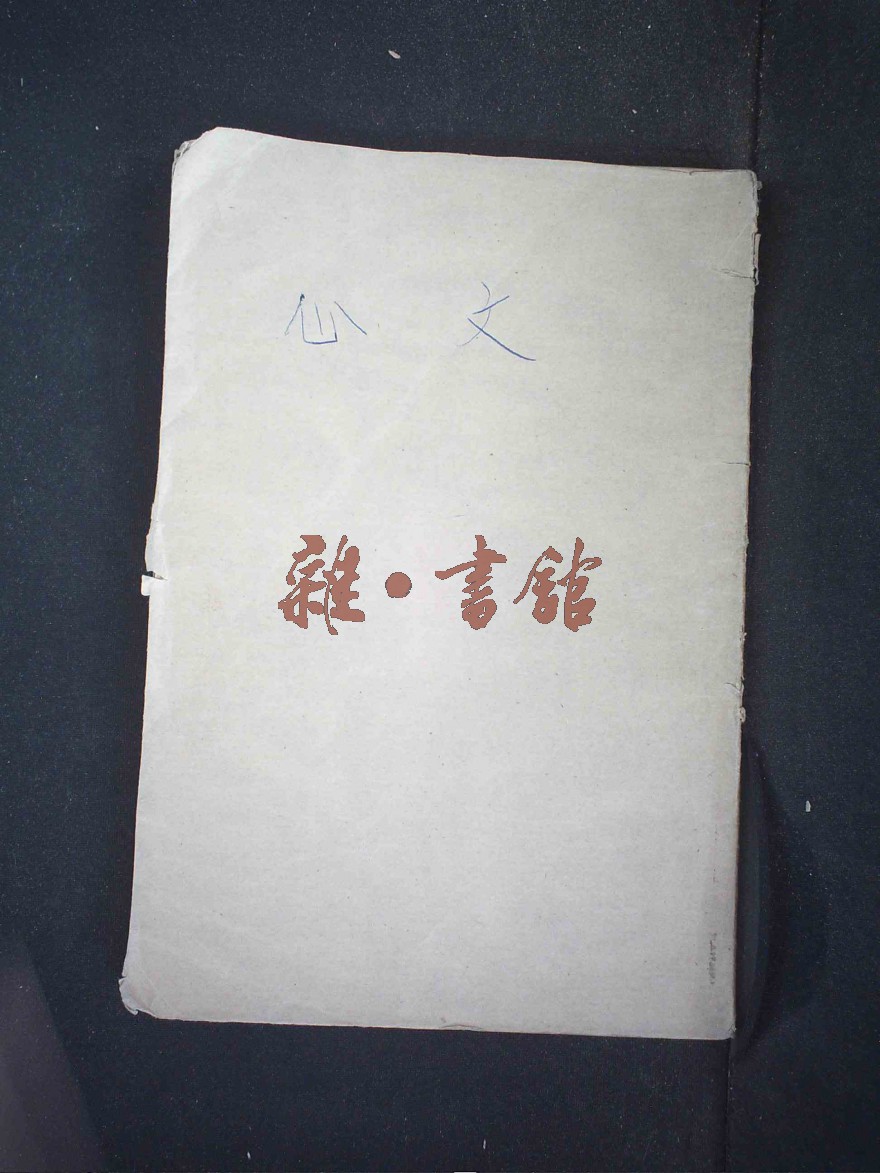 文
雜·書館